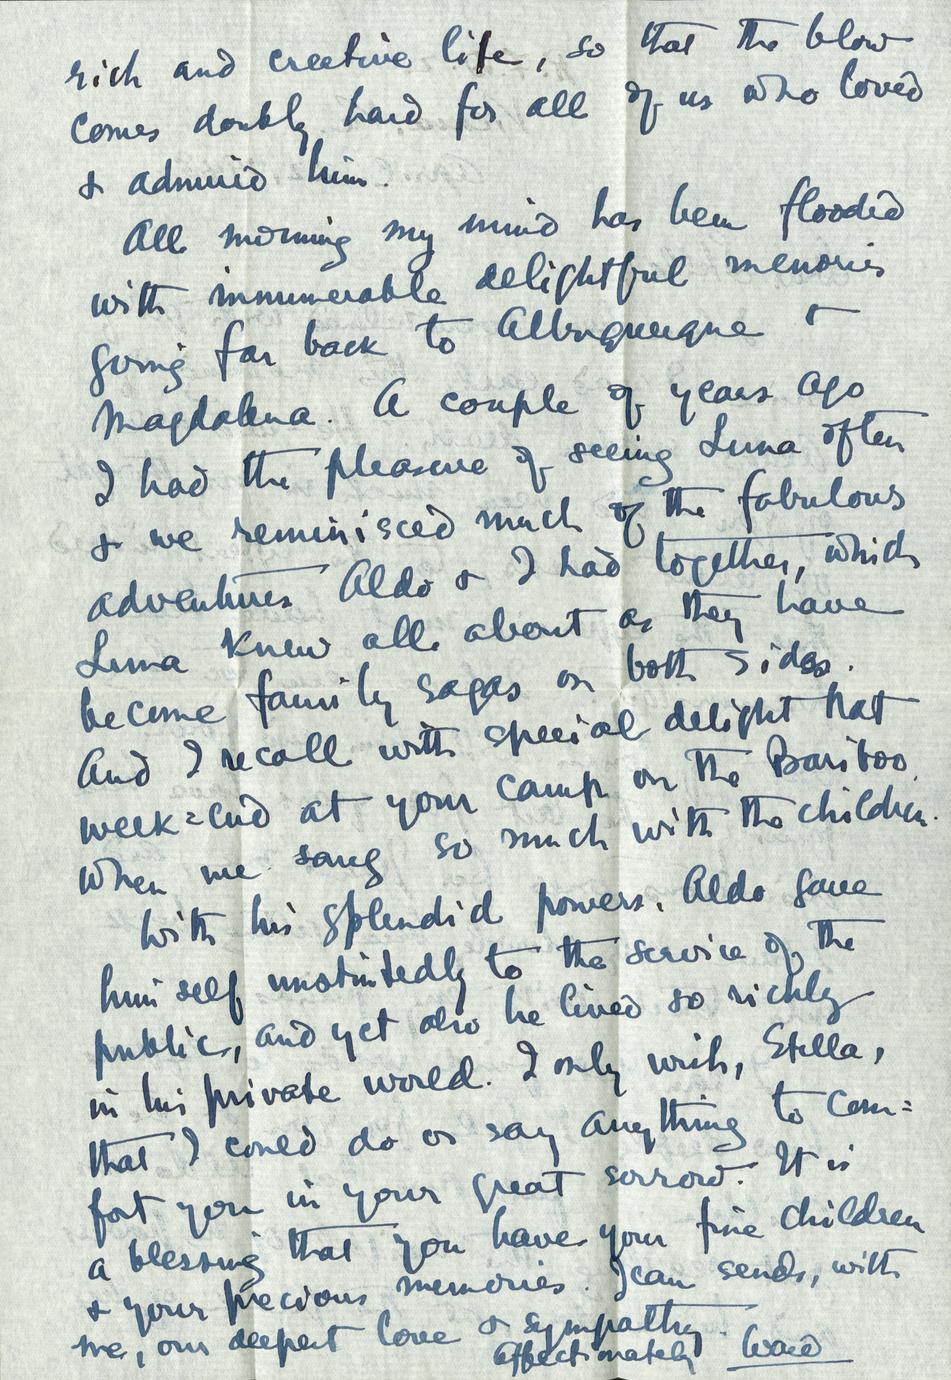 rich and creative life, so that the blow
comes doubly hard for all of us who loved
& admired him.
All morning my mind has been flooded
with innumerable delightful memories
going far back to Albuquerque &
Magdalena. A couple of years ago
I had the pleasure of seeing Luna often
& we reminisced much of the fabulous
adventures Aldo & I had together, which
Luna knew all about as they have
become family sagas on both sides.
And I recall with special delight that
week=end at your camp on the Bariboo
when we sang so much with the children.
With his splendid powers, Aldo gave
himself unstintedly to the service of the
public, and yet also he lived so richly
in his private world. I only wish, Stella,
that I could do or say anything to com=
fort you in your great sorrow. It is
a blessing that you have your fine children
& your precious memories. Jean sends, with
me, our deepest love & sympathy.
Affectionately Ward